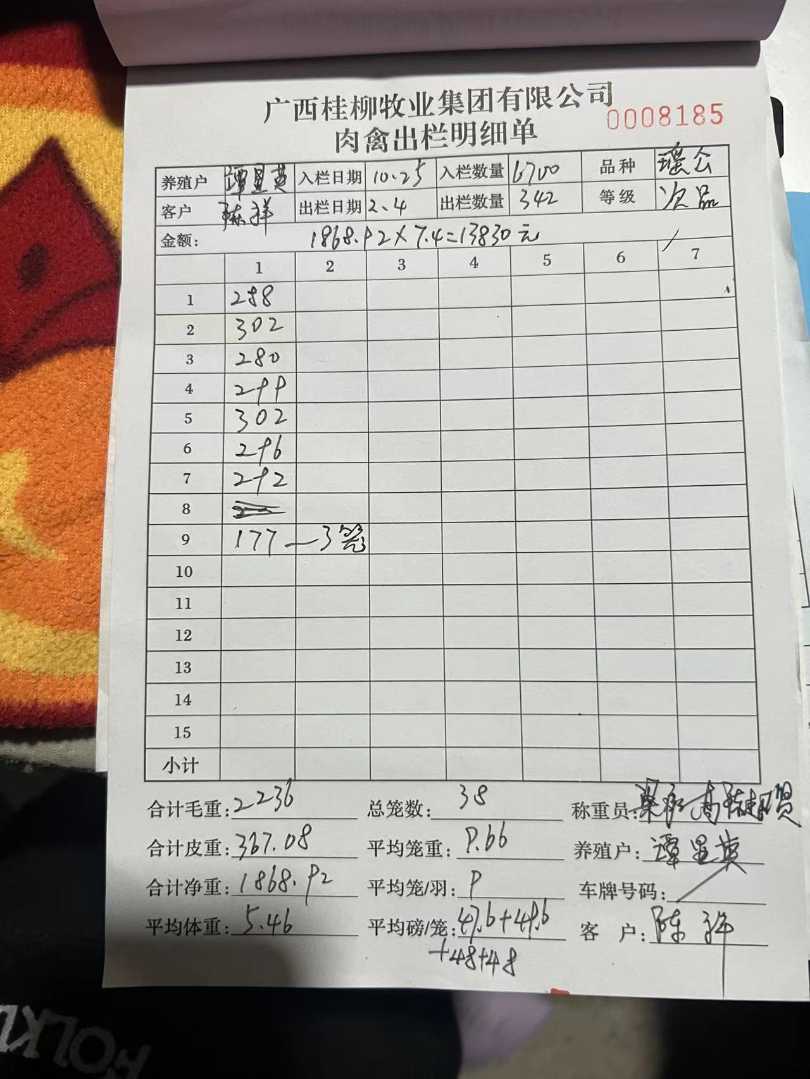 广西桂柳牧业集团有限公司
肉禽出栏明细单 0008185
养殖户 谭显英 入栏日期 10.25 入栏数量 6700 品种 瑶公
客户 陈祥 出栏日期 2.4 出栏数量 342 等级 次品
金额: 1868.92×7.4=13830元
1 2 3 4 5 6 7
1 288
2 302
3 280
4 299
5 302
6 296
7 292
8
9 177—3笼
10
11
12
13
14
15
小计
合计毛重: 2236 总笼数: 38 称重员:
合计皮重: 367.08 平均笼重: 9.66 养殖户: 谭显英
合计净重: 1868.92 平均笼/羽: 9 车牌号码:
平均体重: 5.46 平均磅/笼: 47.6+49.6 客户: 陈祥
+48+48
FOLKL